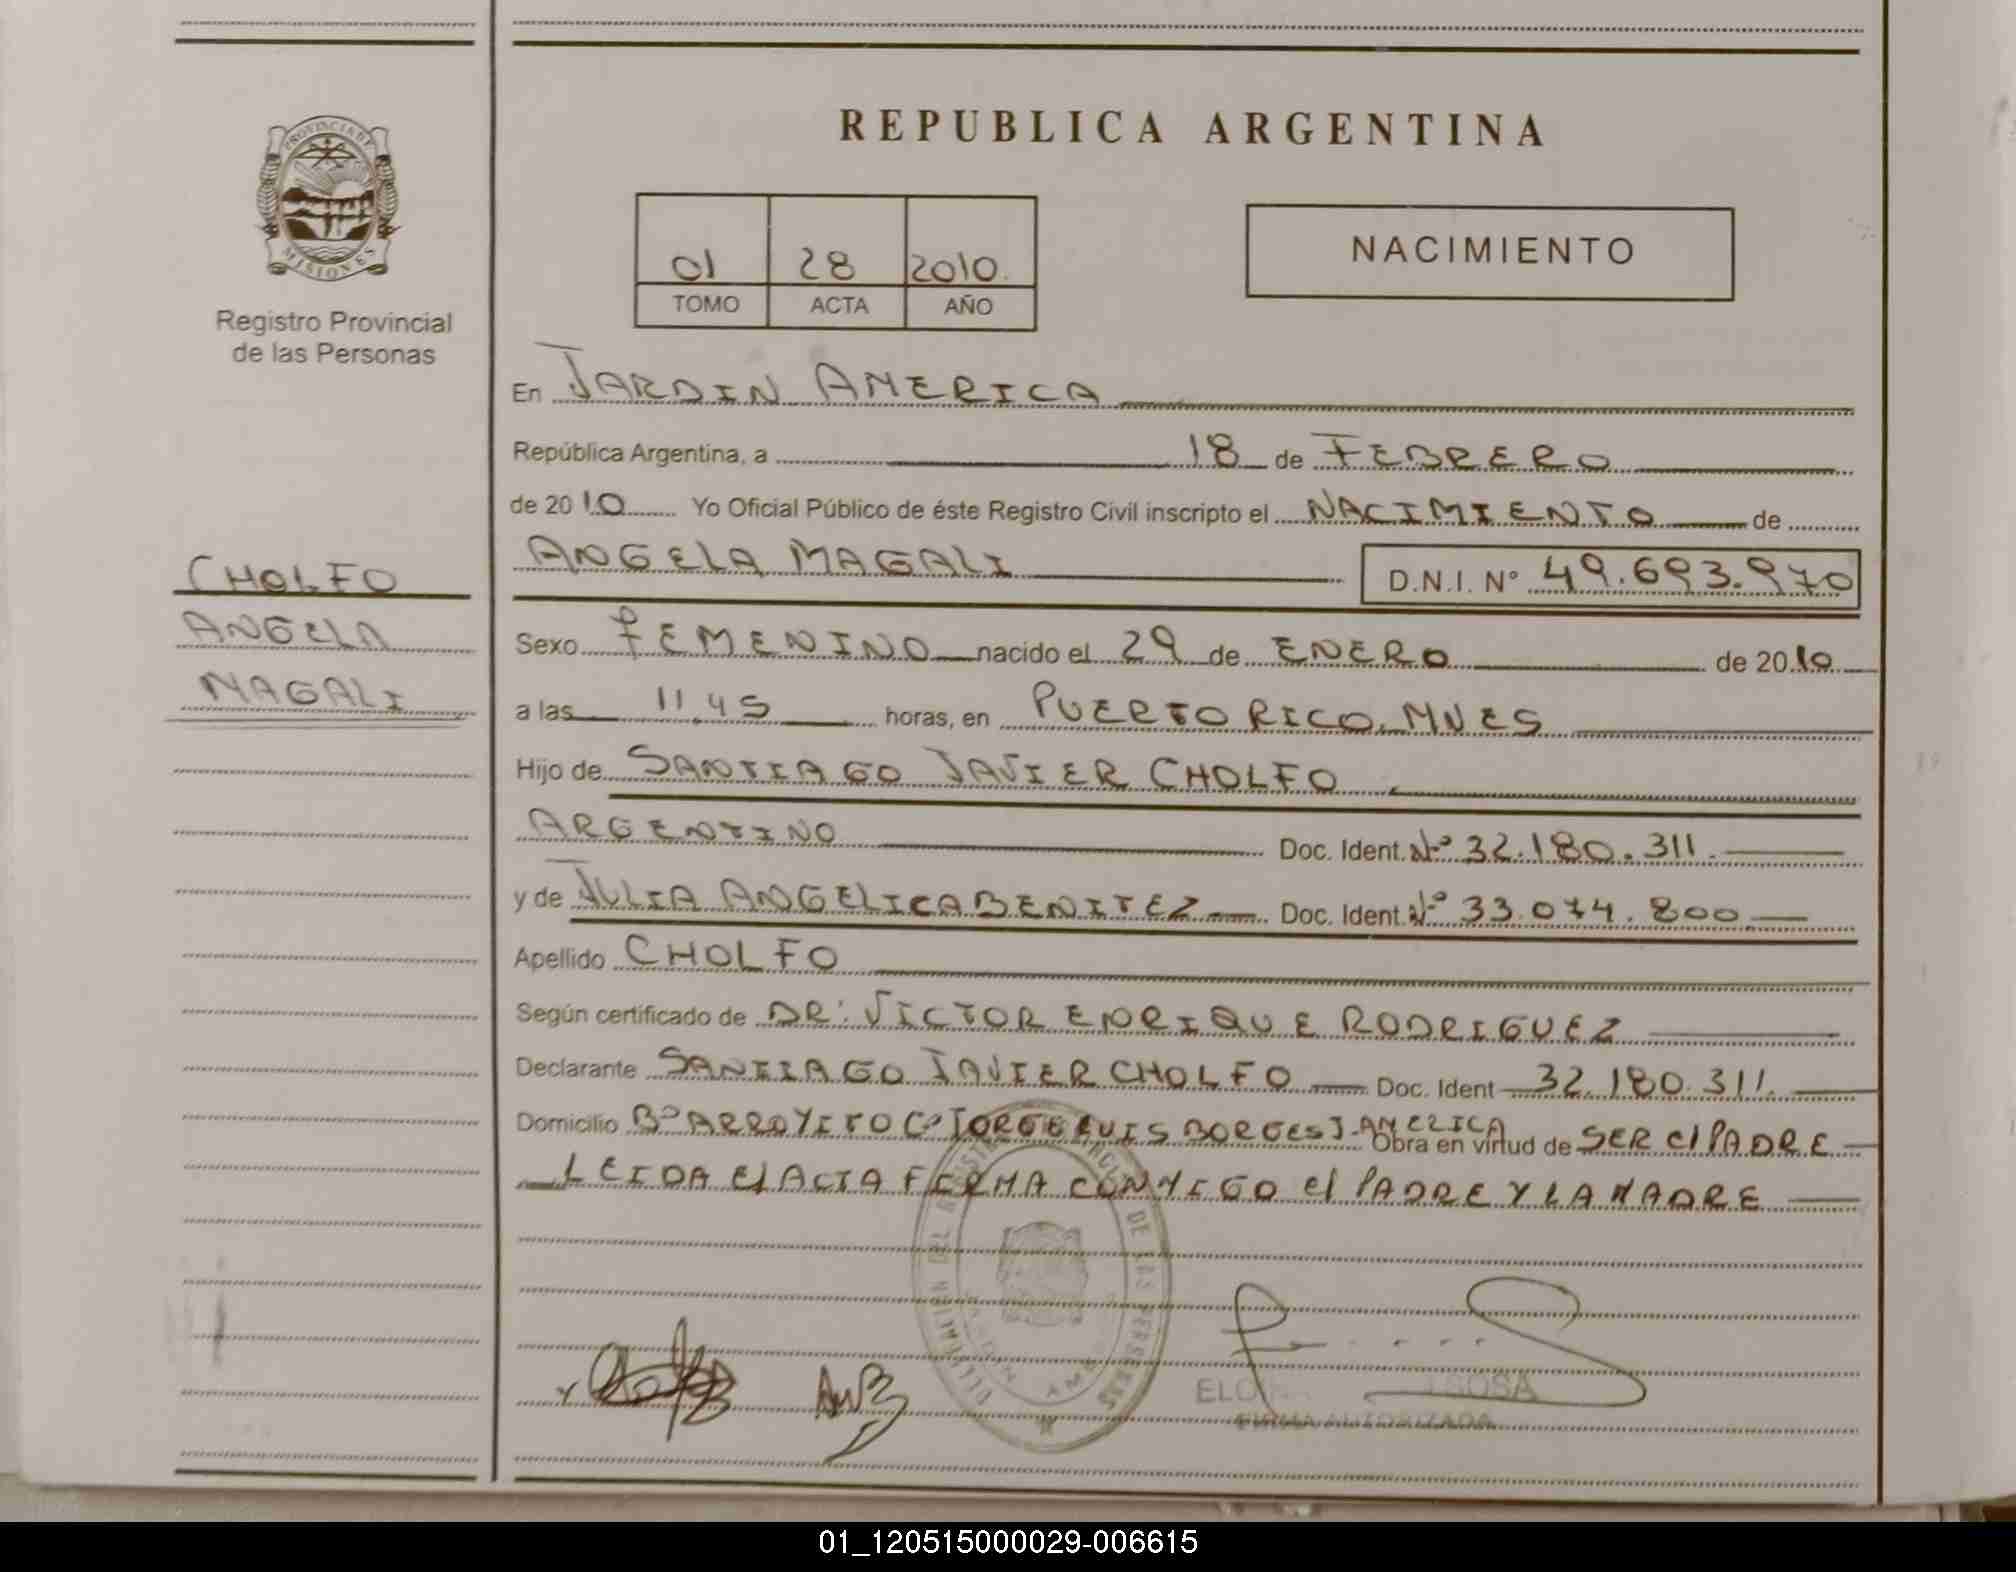 REPUBLICA ARGENTINA
PROVINCIA DE
MISIONES
Registro Provincial
de las Personas
01 28 2010.
TOMO ACTA AÑO
NACIMIENTO
En JARDIN AMERICA
República Argentina, a 18 de FEBRERO
de 2010 Yo Oficial Público de éste Registro Civil inscripto el NACIMIENTO de
ANGELA MAGALI D.N.I. N° 49.693.970
CHOLFO
ANGELA
MAGALI
Sexo FEMENINO nacido el 29 de ENERO de 2010
a las 11.45 horas, en PUERTO RICO. MNES
Hijo de SANTIAGO JAVIER CHOLFO
ARGENTINO Doc. Ident. N° 32.180.311.
y de JULIA ANGELICA BENITEZ Doc. Ident. N° 33.074.800
Apellido CHOLFO
Según certificado de DR: VICTOR ENRIQUE RODRIGUEZ
Declarante SANTIAGO JAVIER CHOLFO Doc. Ident 32.180.311.
Domicilio B° ARROYITO C° JORGE LUIS BORGES J. AMERICA Obra en virtud de SER el PADRE
LEIDA el ACTA FIRMA CONMIGO el PADRE Y LA MADRE
DE LAS PERSONAS
SOSA
FIRMA AUTORIZADA
01_120515000029-006615